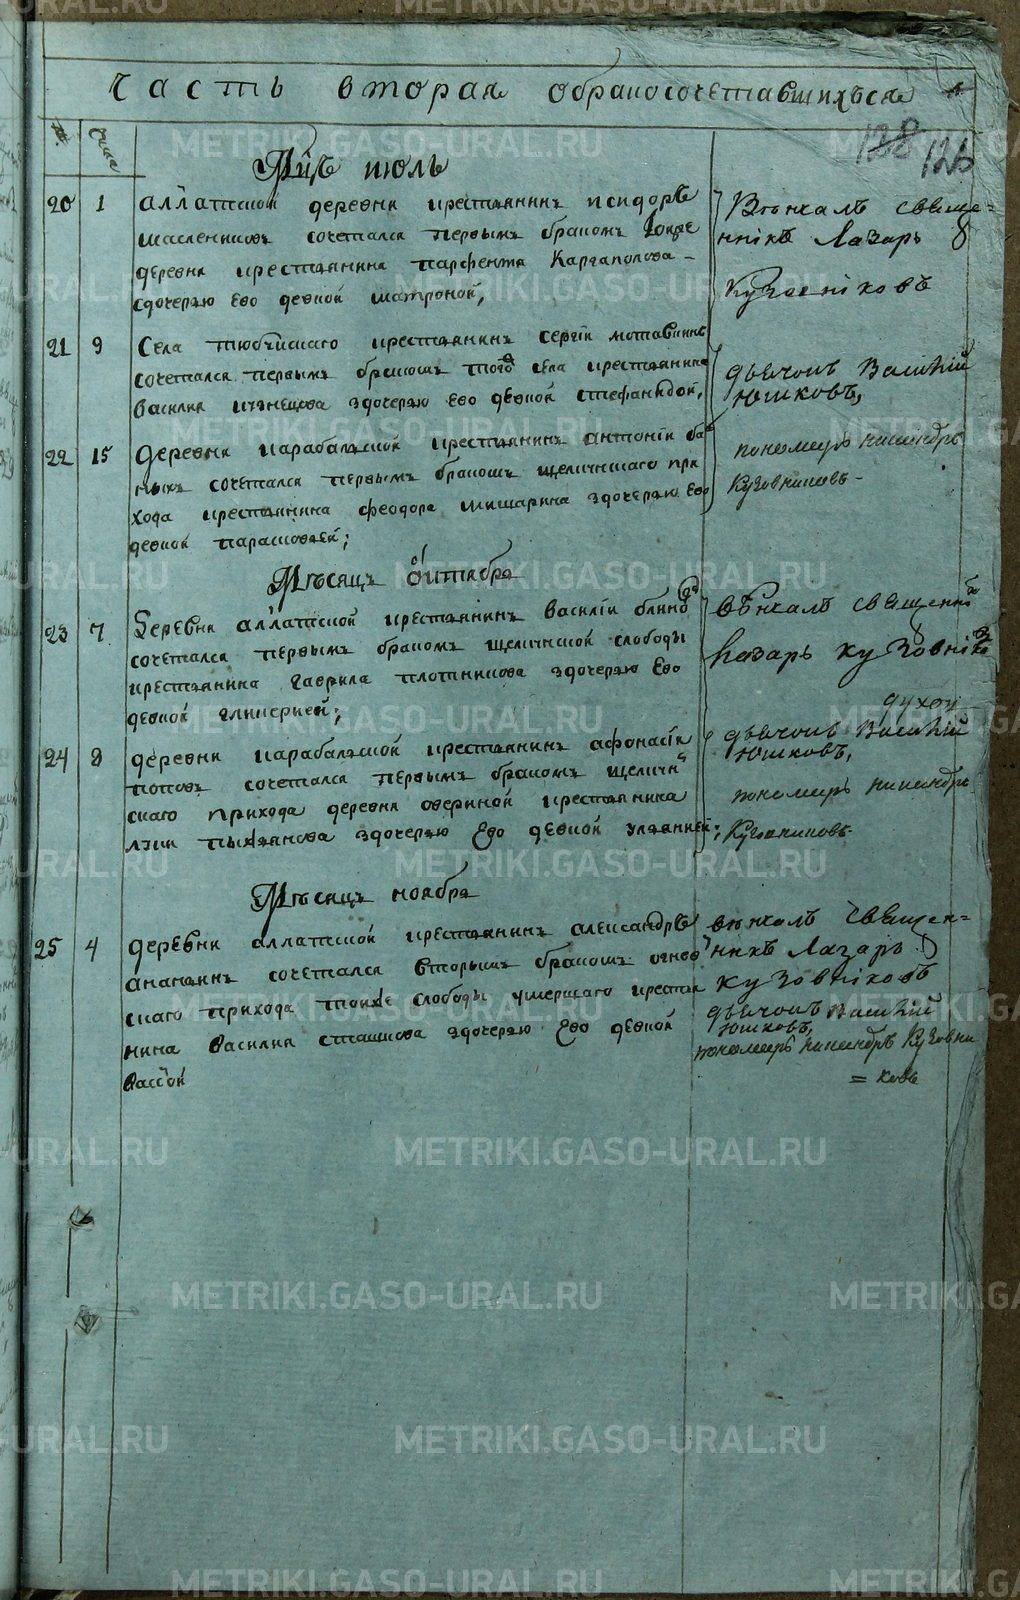 Часть вторая обраносочетавшихъся
№ Числа
128 126
Мцъ июль
20 1 аллатской деревни крестьянинъ исидоръ
масленниковъ сочетался первымъ бракомъ тоиже
деревни крестьянина парфентя Каргаполова
сдочерью Ево девкой матроной,
Венчалъ свяще=
нникъ Лазарь
Кузовніковъ
21 9 Села тюбукскаго крестьянинъ сергій
сочетался первымъ бракомъ того села крестьянина
василия кузнецова здочерью Ево девкой стефанидой,
дьячокъ Василий
Юшковъ,
22 15 деревни карабалыкской крестьянинъ антоній ба
ныхъ сочетался первымъ бракомъ щелкунскаго при
хода крестьянина феодора мишарина здочерью Ево
девкой парасковьей;
пономарь никандръ
Кузовниковъ
Месяцъ октября
23 7 Деревни аллатской крестьянинъ василій блино
сочетался первымъ бракомъ щелкунской слободы
крестьянина гаврила плотникова здочерью Ево
девкой гликерией;
венчалъ священни
Лазарь кузовніко
24 8 деревни карабалыкской крестьянинъ афонасій
поповъ сочетался первымъ бракомъ щелкун
скаго прихода деревни озериной крестьянина
лукі здочерью Ево девкой ульянией;
духов
дьячокъ Василий
Юшковъ,
пономарь никандръ
Кузовниковъ
Месяцъ ноября
25 4 деревни аллатской крестьянинъ александръ
ананьинъ сочетался вторымъ бракомъ огнев
скаго прихода тоиже слободы умершаго крестья
нина василия сташкова здочерью Ево девкой
вассой
венчалъ священ=
никъ Лазарь
кузовніковъ
дьячокъ Василий
Юшковъ,
пономарь никандръ Кузовни
=ковъ
METRIKI.GASO-URAL.RU